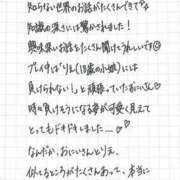 知らない世界のお話がたくさんできて
知識の深さには驚かされました!
興味深いお話とたくさん聞けてうれしいです☺
プレイ中は"りえ(18歳の小娘)には
負けられない!"と頑張っていたおにいさん♡
時に負けそうになる姿が可愛く見えて
とってもドキドキしました…♡
なんだか、おにいさんとりえ、
似てるところがたくさんあって、本当に